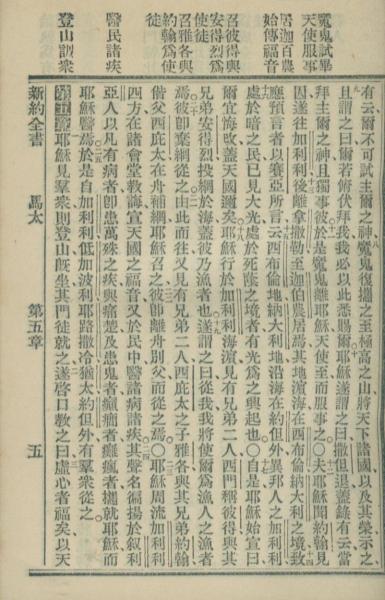 魔鬼試畢
天使服事
居迦百農
始傳福音
召彼得與
安得烈爲
使徒
召雅各與
約翰爲使
徒
醫民諸疾
登山訓衆
有云爾不可試主爾之神魔鬼復攜之至極高之山將天下諸國以及其榮示之
且謂之曰爾若俯伏拜我我必以此悉賜爾耶穌遂謂之曰撒但退蓋錄有云當
拜主爾之神且獨事彼於是魔鬼離耶穌天使至而服事之○夫耶穌聞約翰見
囚遂往加利利後離拿撒勒至迦伯農居焉其地濱海在西布倫納大利之境致
應預言者以賽亞所言云西布倫地納大利地沿海在約但外異邦人之加利利
處於暗之民已見大光處於死蔭之境者有光爲之興起也○自是耶穌始宣曰
爾宜悔改蓋天國邇矣耶穌行於加利利海濱見有兄弟二人西門稱彼得與其
兄弟安得烈投網於海蓋彼乃漁者也遂謂之曰從我我將使爾爲漁人之漁者
焉彼卽棄網從之由此而往又見有兄弟二人西庇太之子雅各與其兄弟約翰
偕父西庇太在舟補網耶穌召之彼卽離舟別父而從之焉○耶穌周流加利利
四方在諸會堂教誨宣天國之福音又於民中醫諸病諸疾其聲名徧揚於叙利
亞人以凡有病者卽患萬殊之疾與痛楚及患鬼者癲癇者癱瘋者攜就耶穌而
耶穌醫焉於是自加利利低加波利耶路撒冷猶太約但外有羣衆從之
第五章 耶穌見羣衆則登山既坐其門徒就之遂啓口教之曰虛心者福矣以天
新約全書 馬太 第五章 五